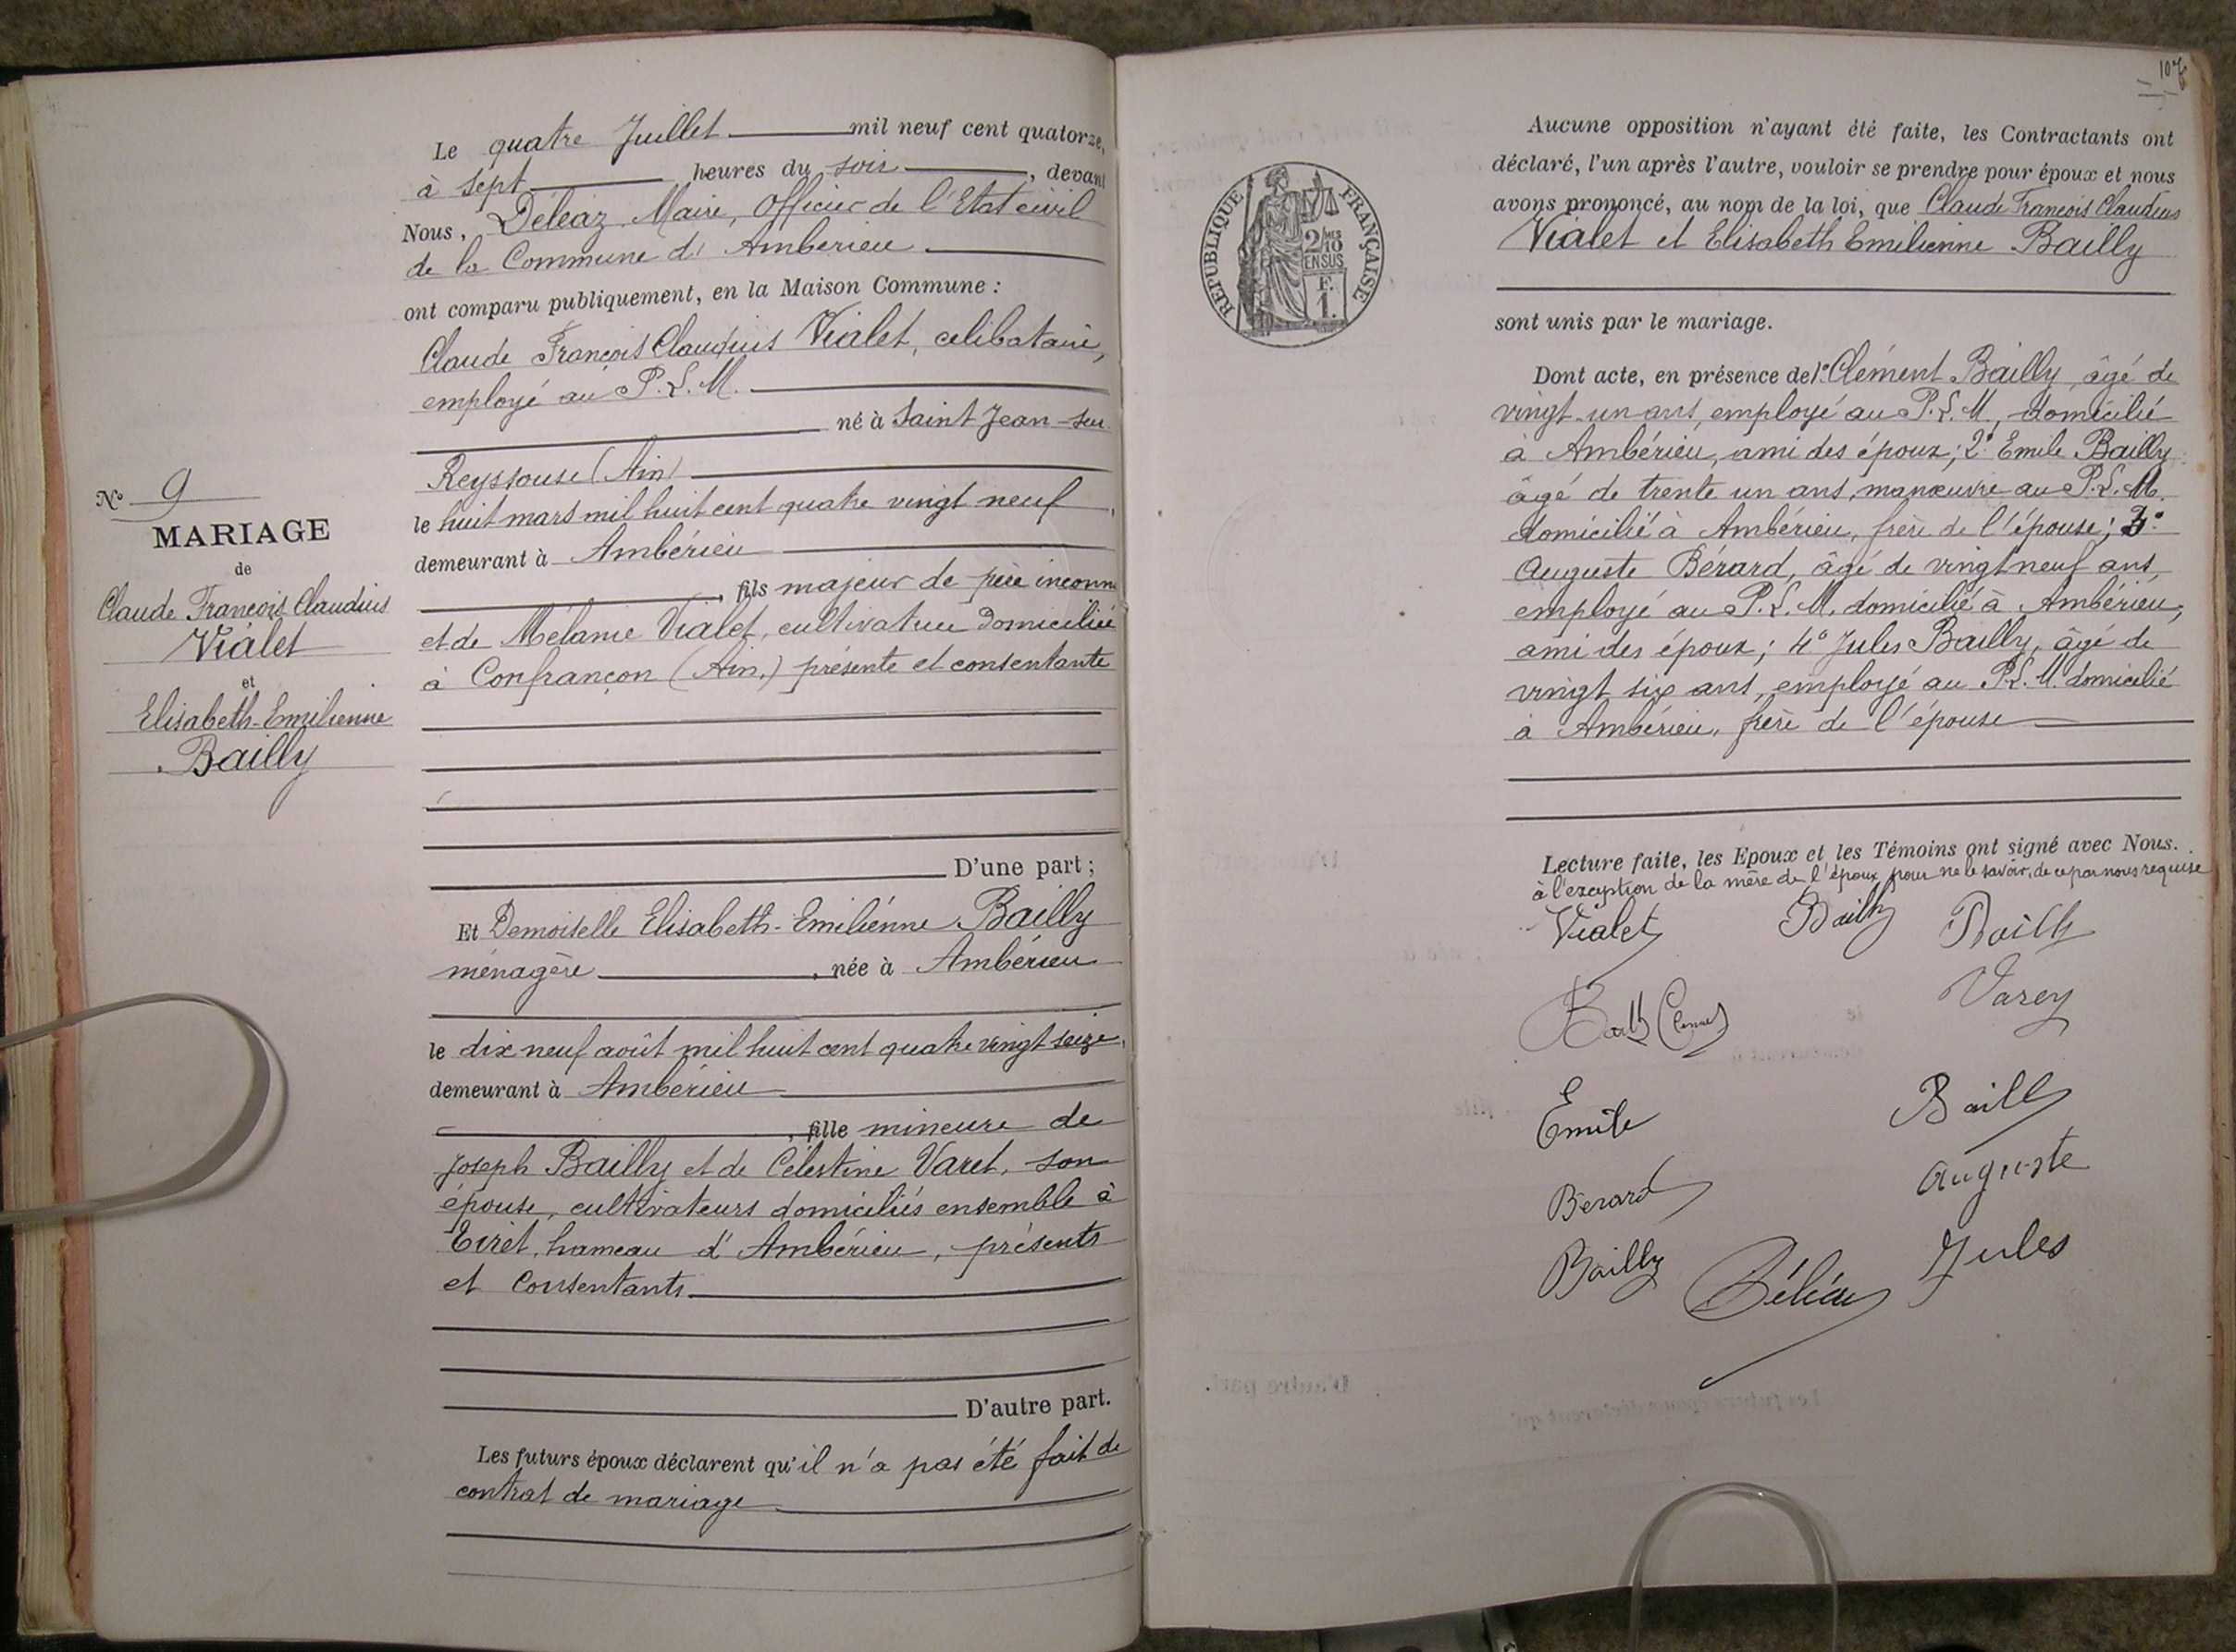 Le quatre Juillet mil neuf cent quatorze,
à sept heures du soir, devant
Nous, Déléaz Maire, Officier de l'Etat civil
de la Commune d'Ambérieu
ont comparu publiquement, en la Maison Commune :
Claude François Claudius Vialet, célibataire,
employé au P.L.M.
né à Saint Jean-sur
Reyssouse (Ain)
le huit mars mil huit cent quatre vingt neuf,
demeurant à Ambérieu
, fils majeur de père inconnu
et de Mélanie Vialet, cultivatrice domiciliée
à Confrançon (Ain,) présente et consentante
D'une part ;
Et Demoiselle Elisabeth-Emiliénne Bailly
ménagère, née à Ambérieu
le dix neuf août mil huit cent quatre vingt seize,
demeurant à Ambérieu
, fille mineure de
Joseph Bailly et de Célestine Varet, son
épouse, cultivateurs domiciliés ensemble à
Tiret, hameau d'Ambérieu, présents
et consentants.
D'autre part.
Les futurs époux déclarent qu'il n'a pas été fait de
contrat de mariage
N° 9
MARIAGE
de
Claude François Claudius
Vialet
et
Elisabeth-Emilienne
Bailly
107
RÉPUBLIQUE FRANÇAISE
2/10
EN SUS
F.
1.
Aucune opposition n'ayant été faite, les Contractants ont
déclaré, l'un après l'autre, vouloir se prendre pour époux et nous
avons prononcé, au nom de la loi, que Claude François Claudius
Vialet et Elisabeth Emilienne Bailly
sont unis par le mariage.
Dont acte, en présence de 1° Clément Bailly, âgé de
vingt-un ans, employé au P.L.M., domicilié
à Ambérieu, ami des époux; 2° Emile Bailly
âgé de trente un ans, manœuvre au P.L.M.
domicilié à Ambérieu, frère de l'épouse; 3°
Auguste Bérard, âgé de vingt neuf ans,
employé au P.L.M. domicilié à Ambérieu,
ami des époux; 4° Jules Bailly, âgé de
vingt six ans, employé au P.L.M. domicilié
à Ambérieu, frère de l'épouse
Lecture faite, les Epoux et les Témoins ont signé avec Nous.
à l'exception de la mère de l'époux pour ne le savoir, de ce par nous requise
Vialet Bailly Bailly
Varey
Emile Bailly
Bérard Auguste
Bailly Jules
Déléaz